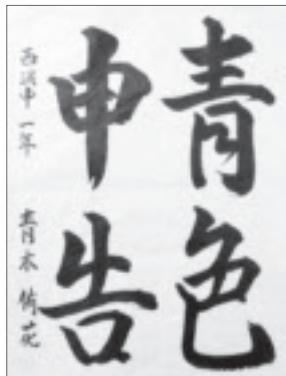 青色
申告
西浜中 一年 青木